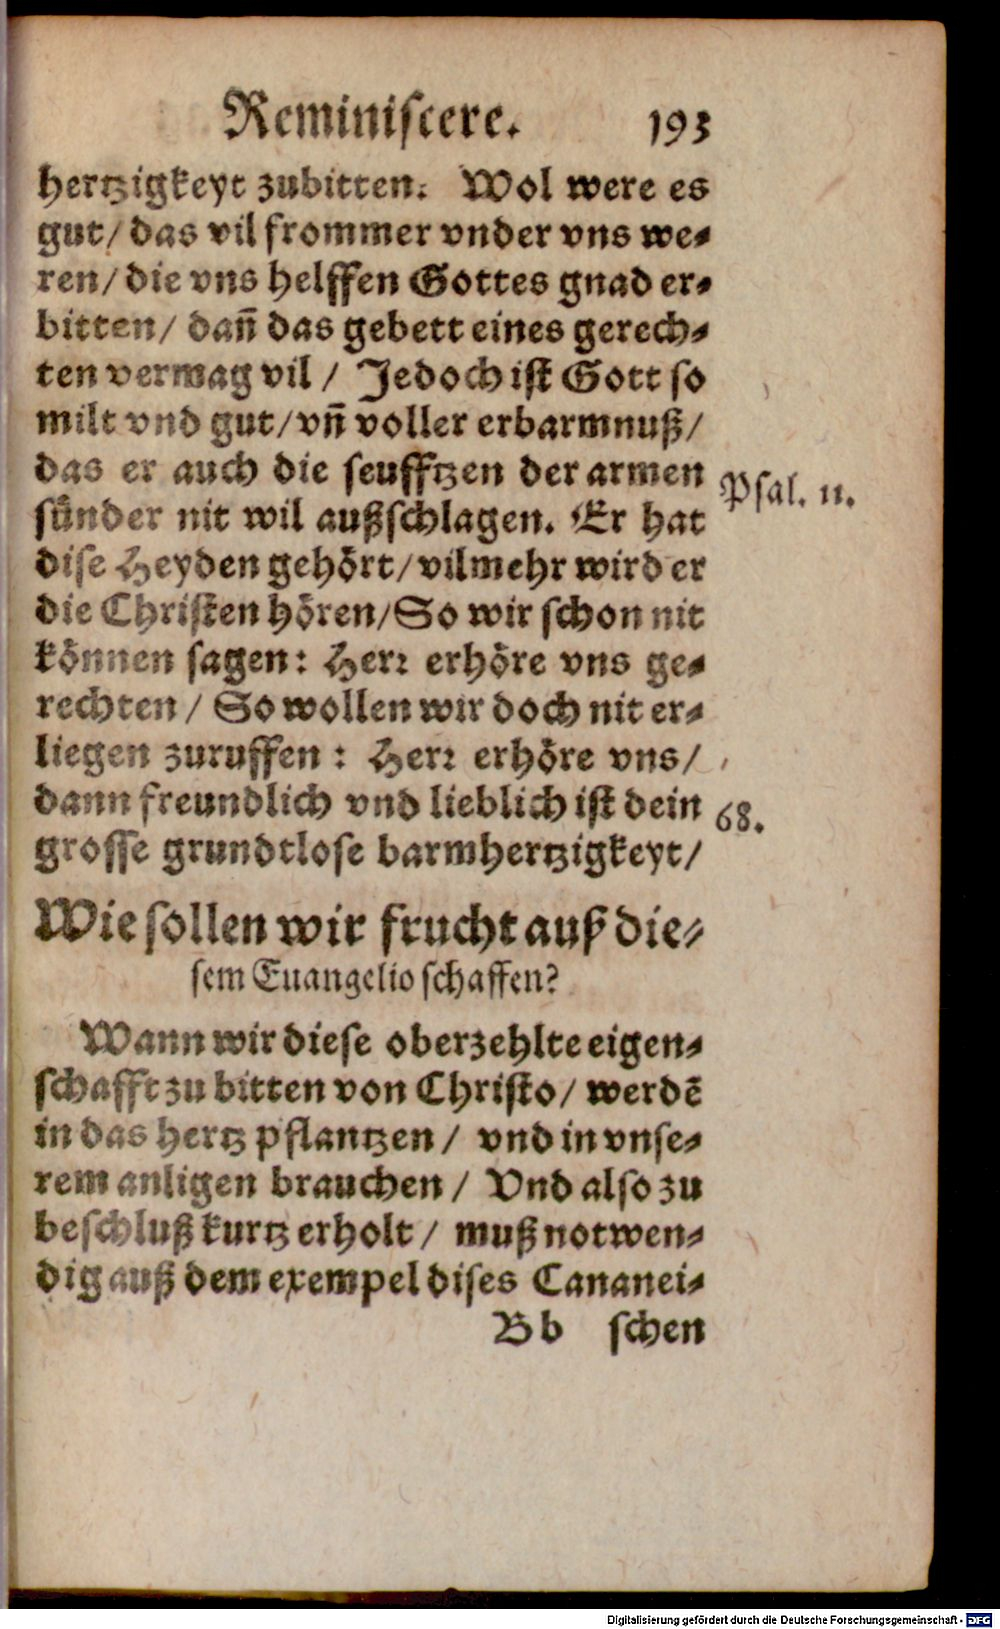 Reminiscere. 193
hertzigkeyt zubitten. Wol were es
gut/ das vil frommer vnder vns we-
ren/ die vns helffen Gottes gnad er-
bitten/ dañ das gebett eines gerech-
ten vermag vil / Jedoch ist Gott so
milt vnd gut/ vñ voller erbarmnuß/
das er auch die seufftzen der armen
Psal. 11.
sünder nit wil außschlagen. Er hat
dise Heyden gehört/ vilmehr wird er
die Christen hören/ So wir schon nit
können sagen: Herr erhöre vns ge-
rechten / So wollen wir doch nit er-
liegen zuruffen : Herr erhöre vns/
dann freundlich vnd lieblich ist dein
68.
grosse grundtlose barmhertzigkeyt/
Wie sollen wir frucht auß die-
sem Euangelio schaffen?
Wann wir diese oberzehlte eigen-
schafft zu bitten von Christo/ werdē
in das hertz pflantzen / vnd in vnse-
rem anligen brauchen / Vnd also zu
beschluß kurtz erholt / muß notwen-
dig auß dem exempel dises Cananei-
Bb schen
Digitalisierung gefördert durch die Deutsche Forschungsgemeinschaft - DFG